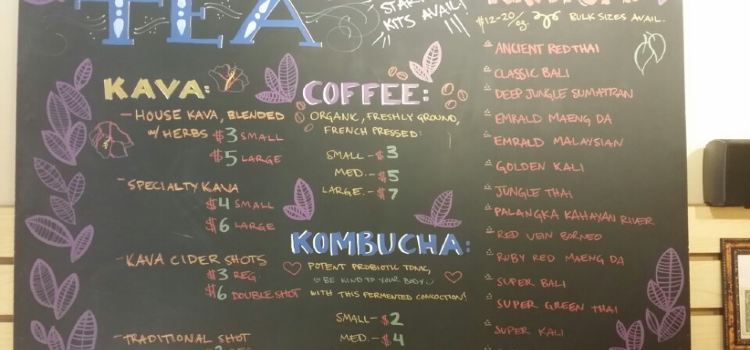 TEA
KITS AVAIL!
$12-20/oz. BULK SIZES AVAIL.
ANCIENT RED THAI
CLASSIC BALI
DEEP JUNGLE SUMATRAN
EMRALD MAENG DA
EMRALD MALAYSIAN
GOLDEN KALI
JUNGLE THAI
PALANGKA KAHAYAN RIVER
RED VEIN BORNEO
RUBY RED MAENG DA
SUPER BALI
SUPER GREEN THAI
SUPER KALI
KAVA:
- HOUSE KAVA, BLENDED
W/ HERBS $3 SMALL
$5 LARGE
- SPECIALTY KAVA
$4 SMALL
$6 LARGE
- KAVA CIDER SHOTS
$3 REG.
$6 DOUBLE SHOT
- TRADITIONAL SHOT
COFFEE:
ORGANIC, FRESHLY GROUND,
FRENCH PRESSED:
SMALL - $3
MED. - $5
LARGE - $7
KOMBUCHA:
POTENT PROBIOTIC TONIC,
BE KIND TO YOUR BODY
WITH THIS FERMENTED CONCOCTION!
SMALL - $2
MED. - $4